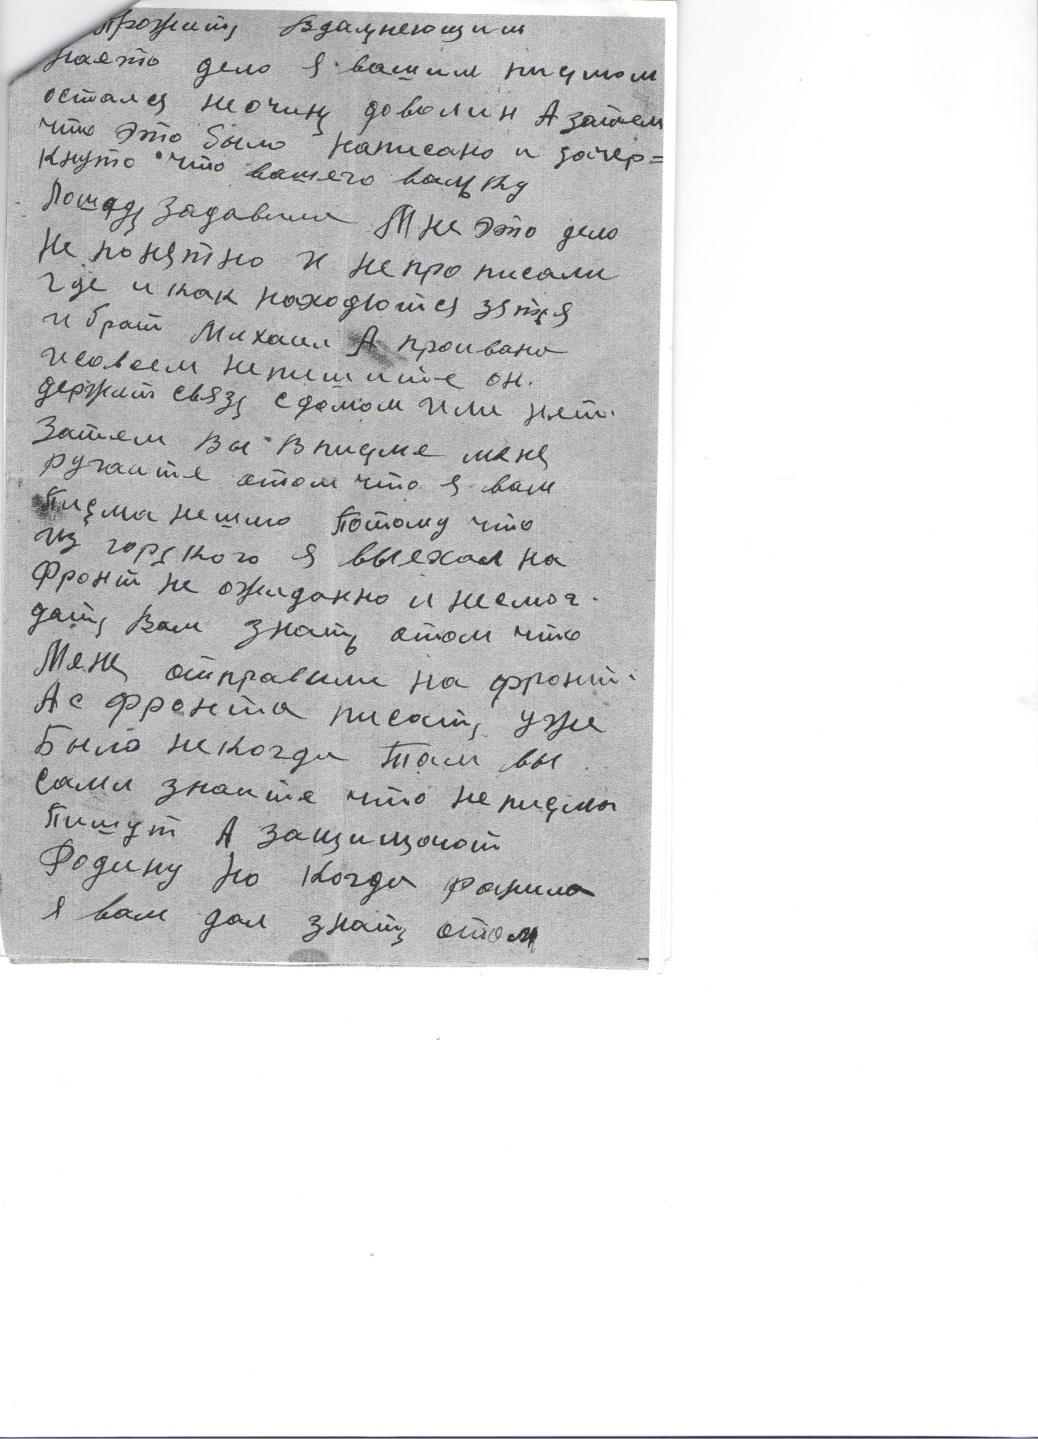 прожить вдальнеющим
наето дело я вашим письмом
остался неочинь доволин А затем
что это было написано и зачер=
кнуто что вашего вальку
Лошадь задавила Мне это дело
не понятно и непрописали
где и как находются зятья
и брат Михаил А проивана
исовсем непишите он.
держит связь сдомом или нет.
Затем Вы Вписме меня
ручаите отом что я вам
Письма нешлю Потому что
из горького я выехал на
Фронт не ожиданно и несмог.
дать Вам знать отом что
Меня отправили на фронт.
Ас фронта писать уже
Было некогда Там вы
сами знаите что неписмы
Пишут А защищают
Родину Но Когда ранило
я вам дал знать отом